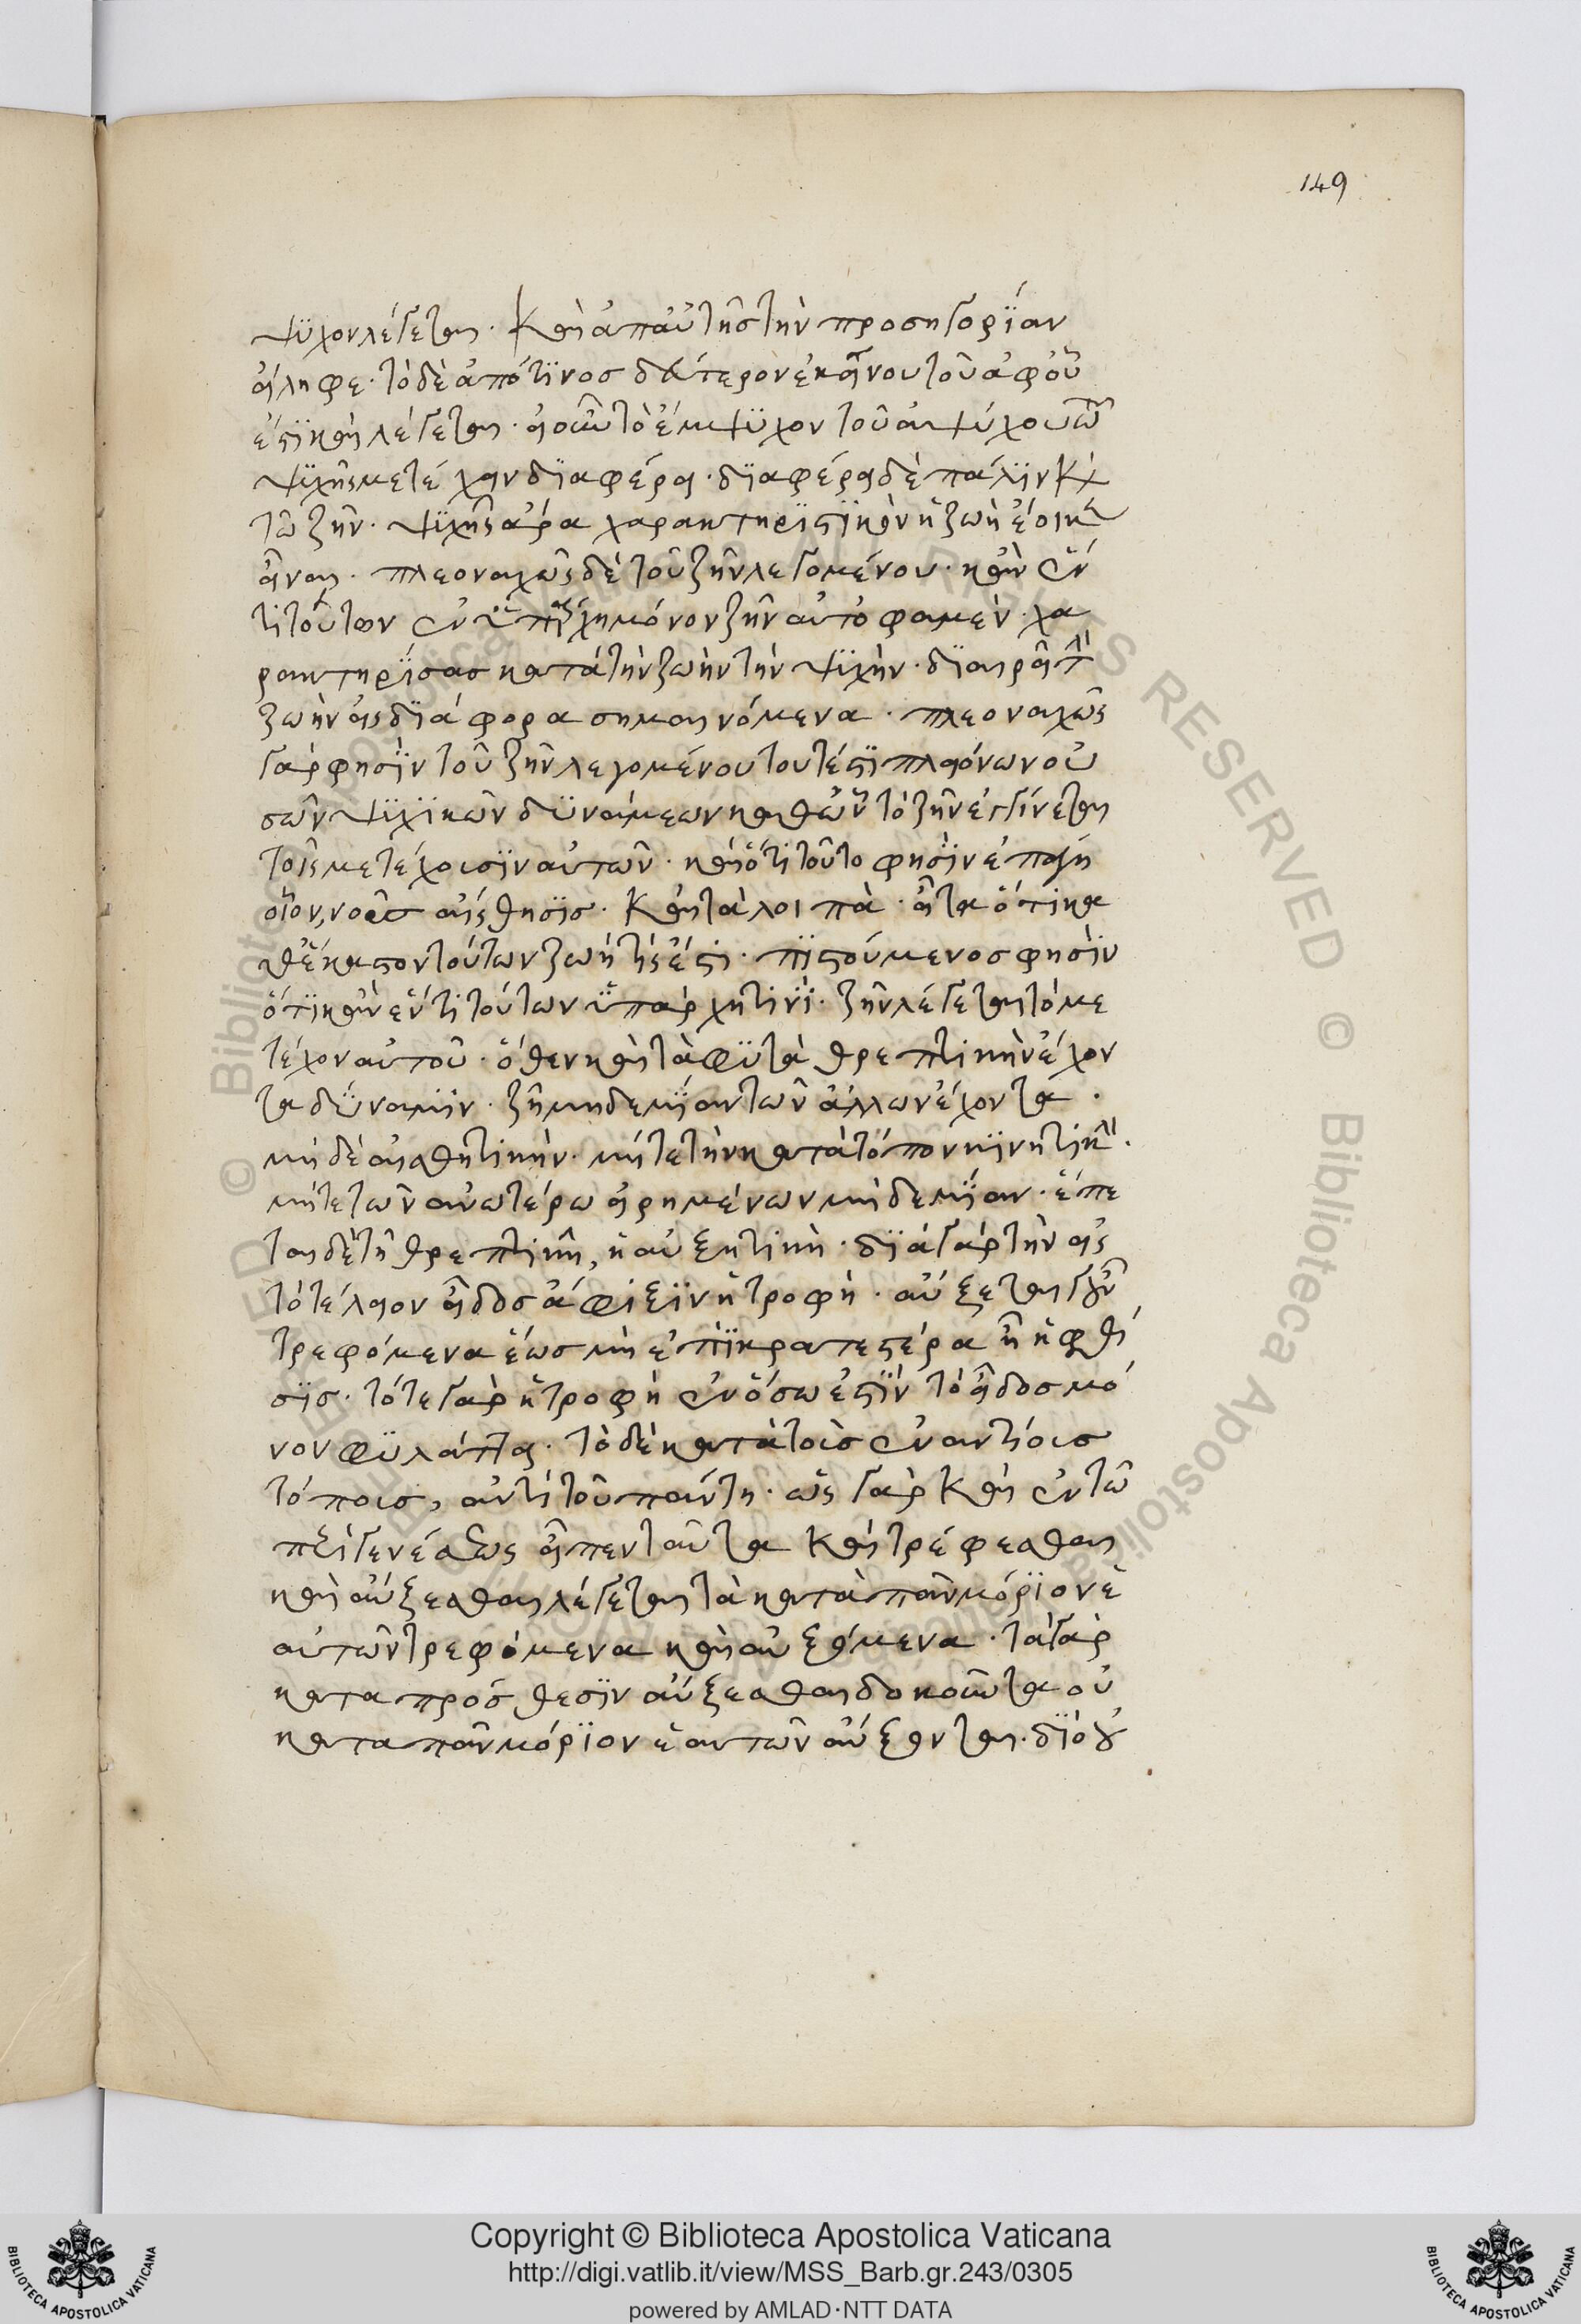 149
ψϋχον λέγεται. καὶ ἀπ' αὐτῆς τὴν προσηγορΐαν
εἴληφε. τὸ δὲ ἀπό τϊνος δεύτερον ἐκείνου τοῦ ἀφ' οὗ
ἐστϊ καὶ λέγεται. εἰ οὖν τὸ ἔμψϋχον τοῦ ἀψύχου τῶ
ψϋχῆς μετέχειν δϊαφέρει. δϊαφέρει δὲ πάλϊν κ(αὶ)
τῶ ζῆν. ψϋχῆς ἄρα χαρακτηρϊστϊκὸν ἡ ζωὴ ἔοικεν
εἶναι. πλεοναχῶς δὲ τοῦ ζῆν λεγομένου. κἂν ἕν
τι τούτων ἐνυπάρχη μόνον ζῆν αὐτό φαμεν. χα
ρακτηρΐσας κατὰ τὴν ζωὴν τὴν ψϋχὴν. δϊαιρεῖ τὴν
ζωὴν εἰς δϊάφορα σημαινόμενα. πλεοναχῶς
γάρ φησϊν τοῦ ζῆν λεγομένου τουτέστϊ πλειόνων οὐ
σῶν ψϋχϊκῶν δϋνάμεων καθ' ὧν τὸ ζῆν ἐγγίνεται
τοῖς μετέχουσϊν αὐτῶν. καὶ ὅτι τοῦτο φησὶν ἐπάγει
οἷον, νοῦς αἴσθησϊς. καὶ τὰ λοιπὰ. εἶτα ὅτι κα
θ' ἕκαστον τούτων ζωή τίς ἐστι. πϊστούμενος φησὶν
ὅτϊ κἂν ἕν τι τούτων ὑπάρχη τινϊ. ζῆν λέγεται τὸ με
τέχον αὐτοῦ. ὅθεν καὶ τὰ φϋτὰ θρεπτικὴν ἔχον
τα δύναμϊν. ζῆ μηδεμΐαν τῶν ἄλλων ἔχοντα.
μὴ δὲ αἰσθητικὴν. μήτε τὴν κατὰ τόπον κϊνητικὴν.
μήτε τῶν ἀνωτέρω εἰρημένων μὴδεμΐαν. ἕπε
ται δὲ τῆ θρεπτικῆ, ἡ αὐξητικὴ. δϊὰ γὰρ τὴν εἰς
τὸ τέλειον εἶδος ἄφιξϊν ἡ τροφὴ. αὔξεται γοῦν
τρεφόμενα ἕως μὴ ἐπϊκρατεστέρα ἦ ἡ φθί
σϊς. τότε γὰρ ἡ τροφὴ ἐν ὅσω ἐστϊν τὸ εἶδος μό
νον φϋλάττει. τὸ δὲ κατὰ τοὺς ἐναντίους
τόπους, ἀντὶ τοῦ πάντη. ὡς γὰρ καὶ ἐν τῶ
περὶ γενέσεως εἶπεν ταῦτα καὶ τρέφεσθαι
καὶ αὔξεσθαι λέγεται τὰ κατὰ πᾶν μόρϊον ἑ
αυτῶν τρεφόμενα καὶ αὐξόμενα. τὰ γὰρ
κατα πρόσθεσϊν αὔξεσθαι δοκοῦντα οὐ
κατα πᾶν μόρϊον ἑαυτῶν αὔξονται. δϊὸ οὐ
Copyright © Biblioteca Apostolica Vaticana
http://digi.vatlib.it/view/MSS_Barb.gr.243/0305
powered by AMLAD·NTT DATA